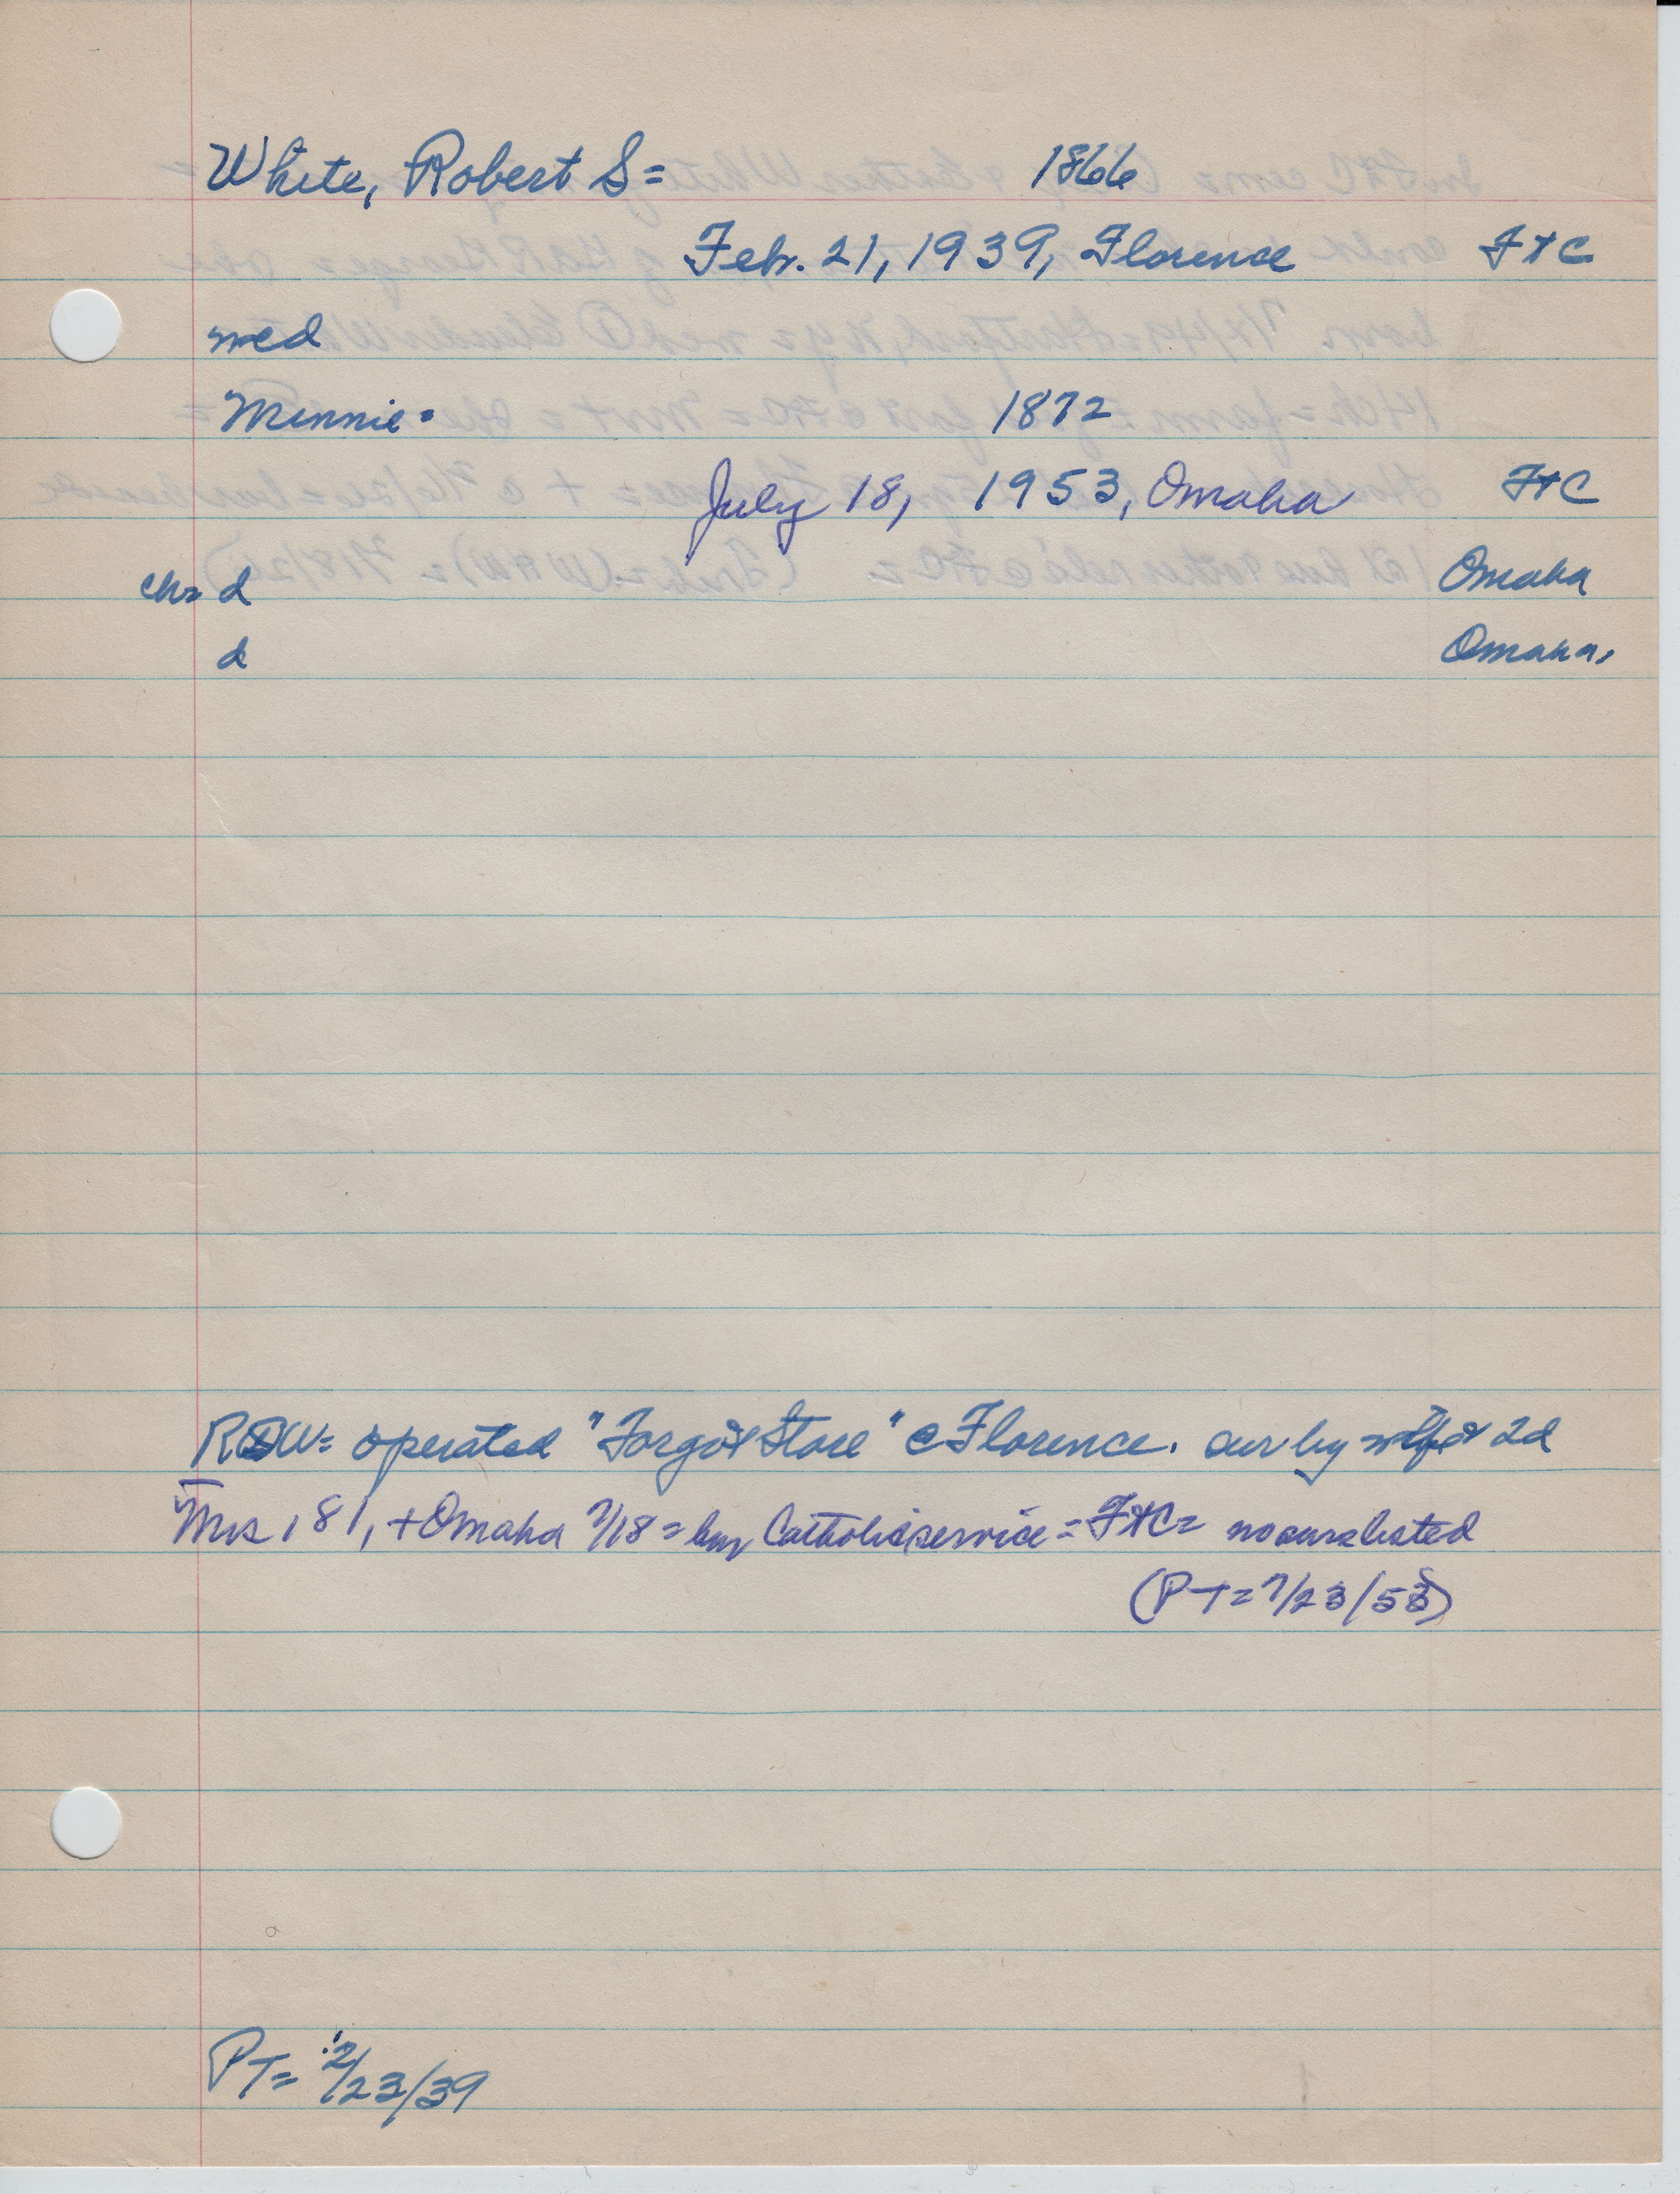 White, Robert S= 1866
Feb. 21, 1939, Florence F+C
med
Minnie= 1872
July 18, 1953, Omaha F+C
ch= d Omaha
d Omaha,
RSW= operated "Forgot Store" @ Florence. sur by wife & 2d
Mrs, 81, + Omaha 7/18 = bur Catholic service = F+C = no surs listed
(PT= 7/23/53)
PT= 2/23/39